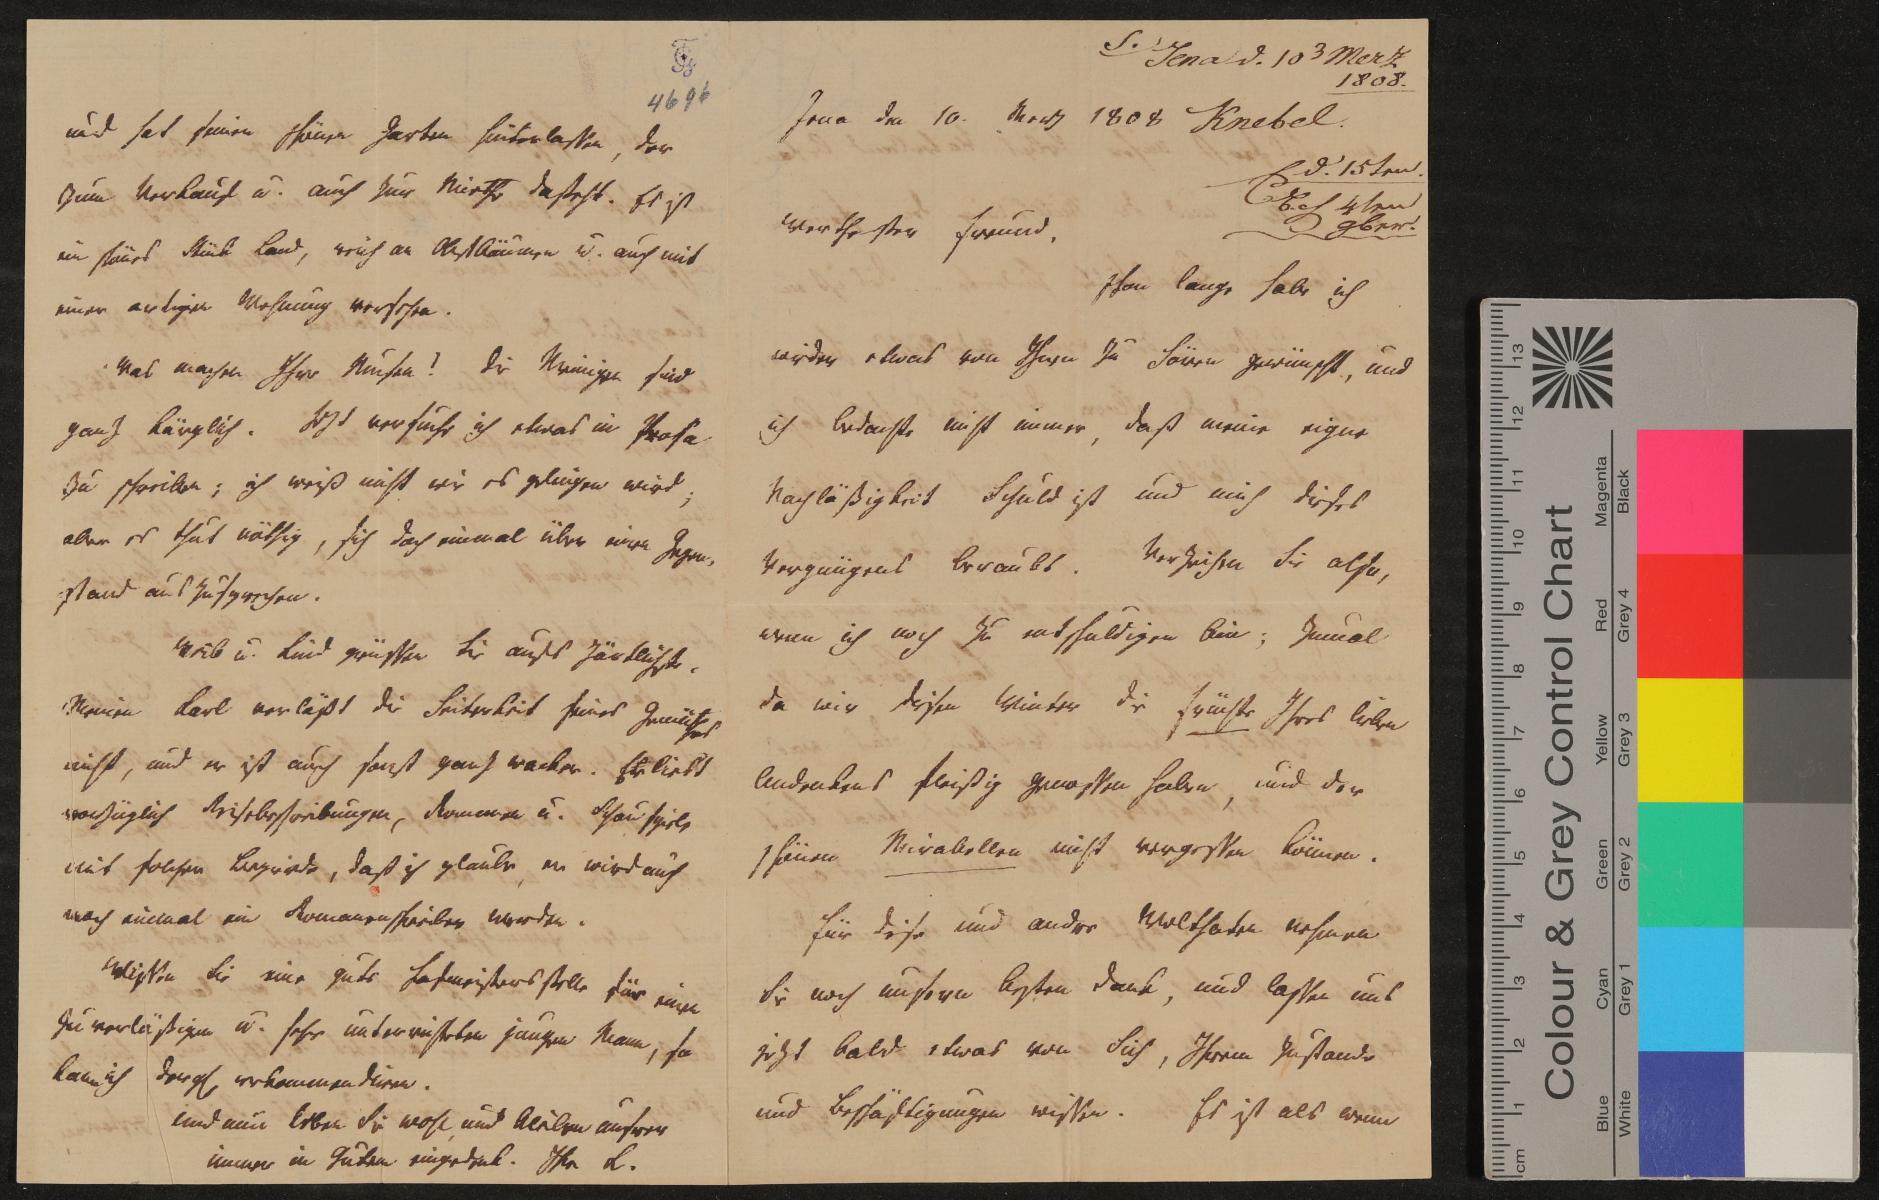 S. Jena d. 10 3 Mertz
1808.
Jena den 10. Mertz 1808 Knebel.
d. 15ten.
4ten
9ber.
Werthester Freund,
Schon lange habe ich
wieder etwas von Ihnen zu hören gewünscht, und
ich bedachte nicht immer, daß meine eigne
Nachläßigkeit Schuld ist und mich dieses
Vergnügens beraubt. Verzeihen Sie also,
wenn ich noch zu entschuldigen bin; zumal
da wir diesen Winter die Früchte Ihres lieben
Andenkens fleißig genossen haben, und der
schönen Mirabellen nicht vergessen können.
Für diese und andre Wolthaten nehmen
Sie noch unsern besten Dank, und lassen uns
jetzt bald etwas von Sich, Ihrem Zustande
und Beschäftigungen wissen. Es ist als wenn
4696
und hat seinen schönen Garten hinterlassen, der
zum Verkauf u. auch zur Miethe dasteht. Es ist
ein schönes Stück Land, reich an Obstbäumen u. auch mit
einer artigen Wohnung versehen.
Was machen Ihre Musen? Die Meinigen sind
ganz kärglich. Jetzt versuche ich etwas in Prosa
zu schreiben; ich weiß nicht wie es gelingen wird;
aber es thut nöthig, sich doch einmal über einen Gegen-
stand auszusprechen.
Weib u. Kind grüssen Sie aufs zärtlichste.
Meinen Karl verläßt die Heiterkeit seines Gemüthes
nicht, und er ist auch sonst ganz wacker. Er liest
vorzüglich Reisebeschreibungen, Romanen u. Schauspiele
mit solcher Begierde, daß ich glaube, er wird auch
noch einmal ein Romanenschreiber werden.
Wissen Sie eine gute Hofmeistersstelle für einen
zuverläßigen u. sehr unterrichteten jungen Mann, so
kann ich dergl. rekommendiren.
Und nun leben Sie wohl und bleiben unsrer
immer in Gutem eingedenk. Ihr K.